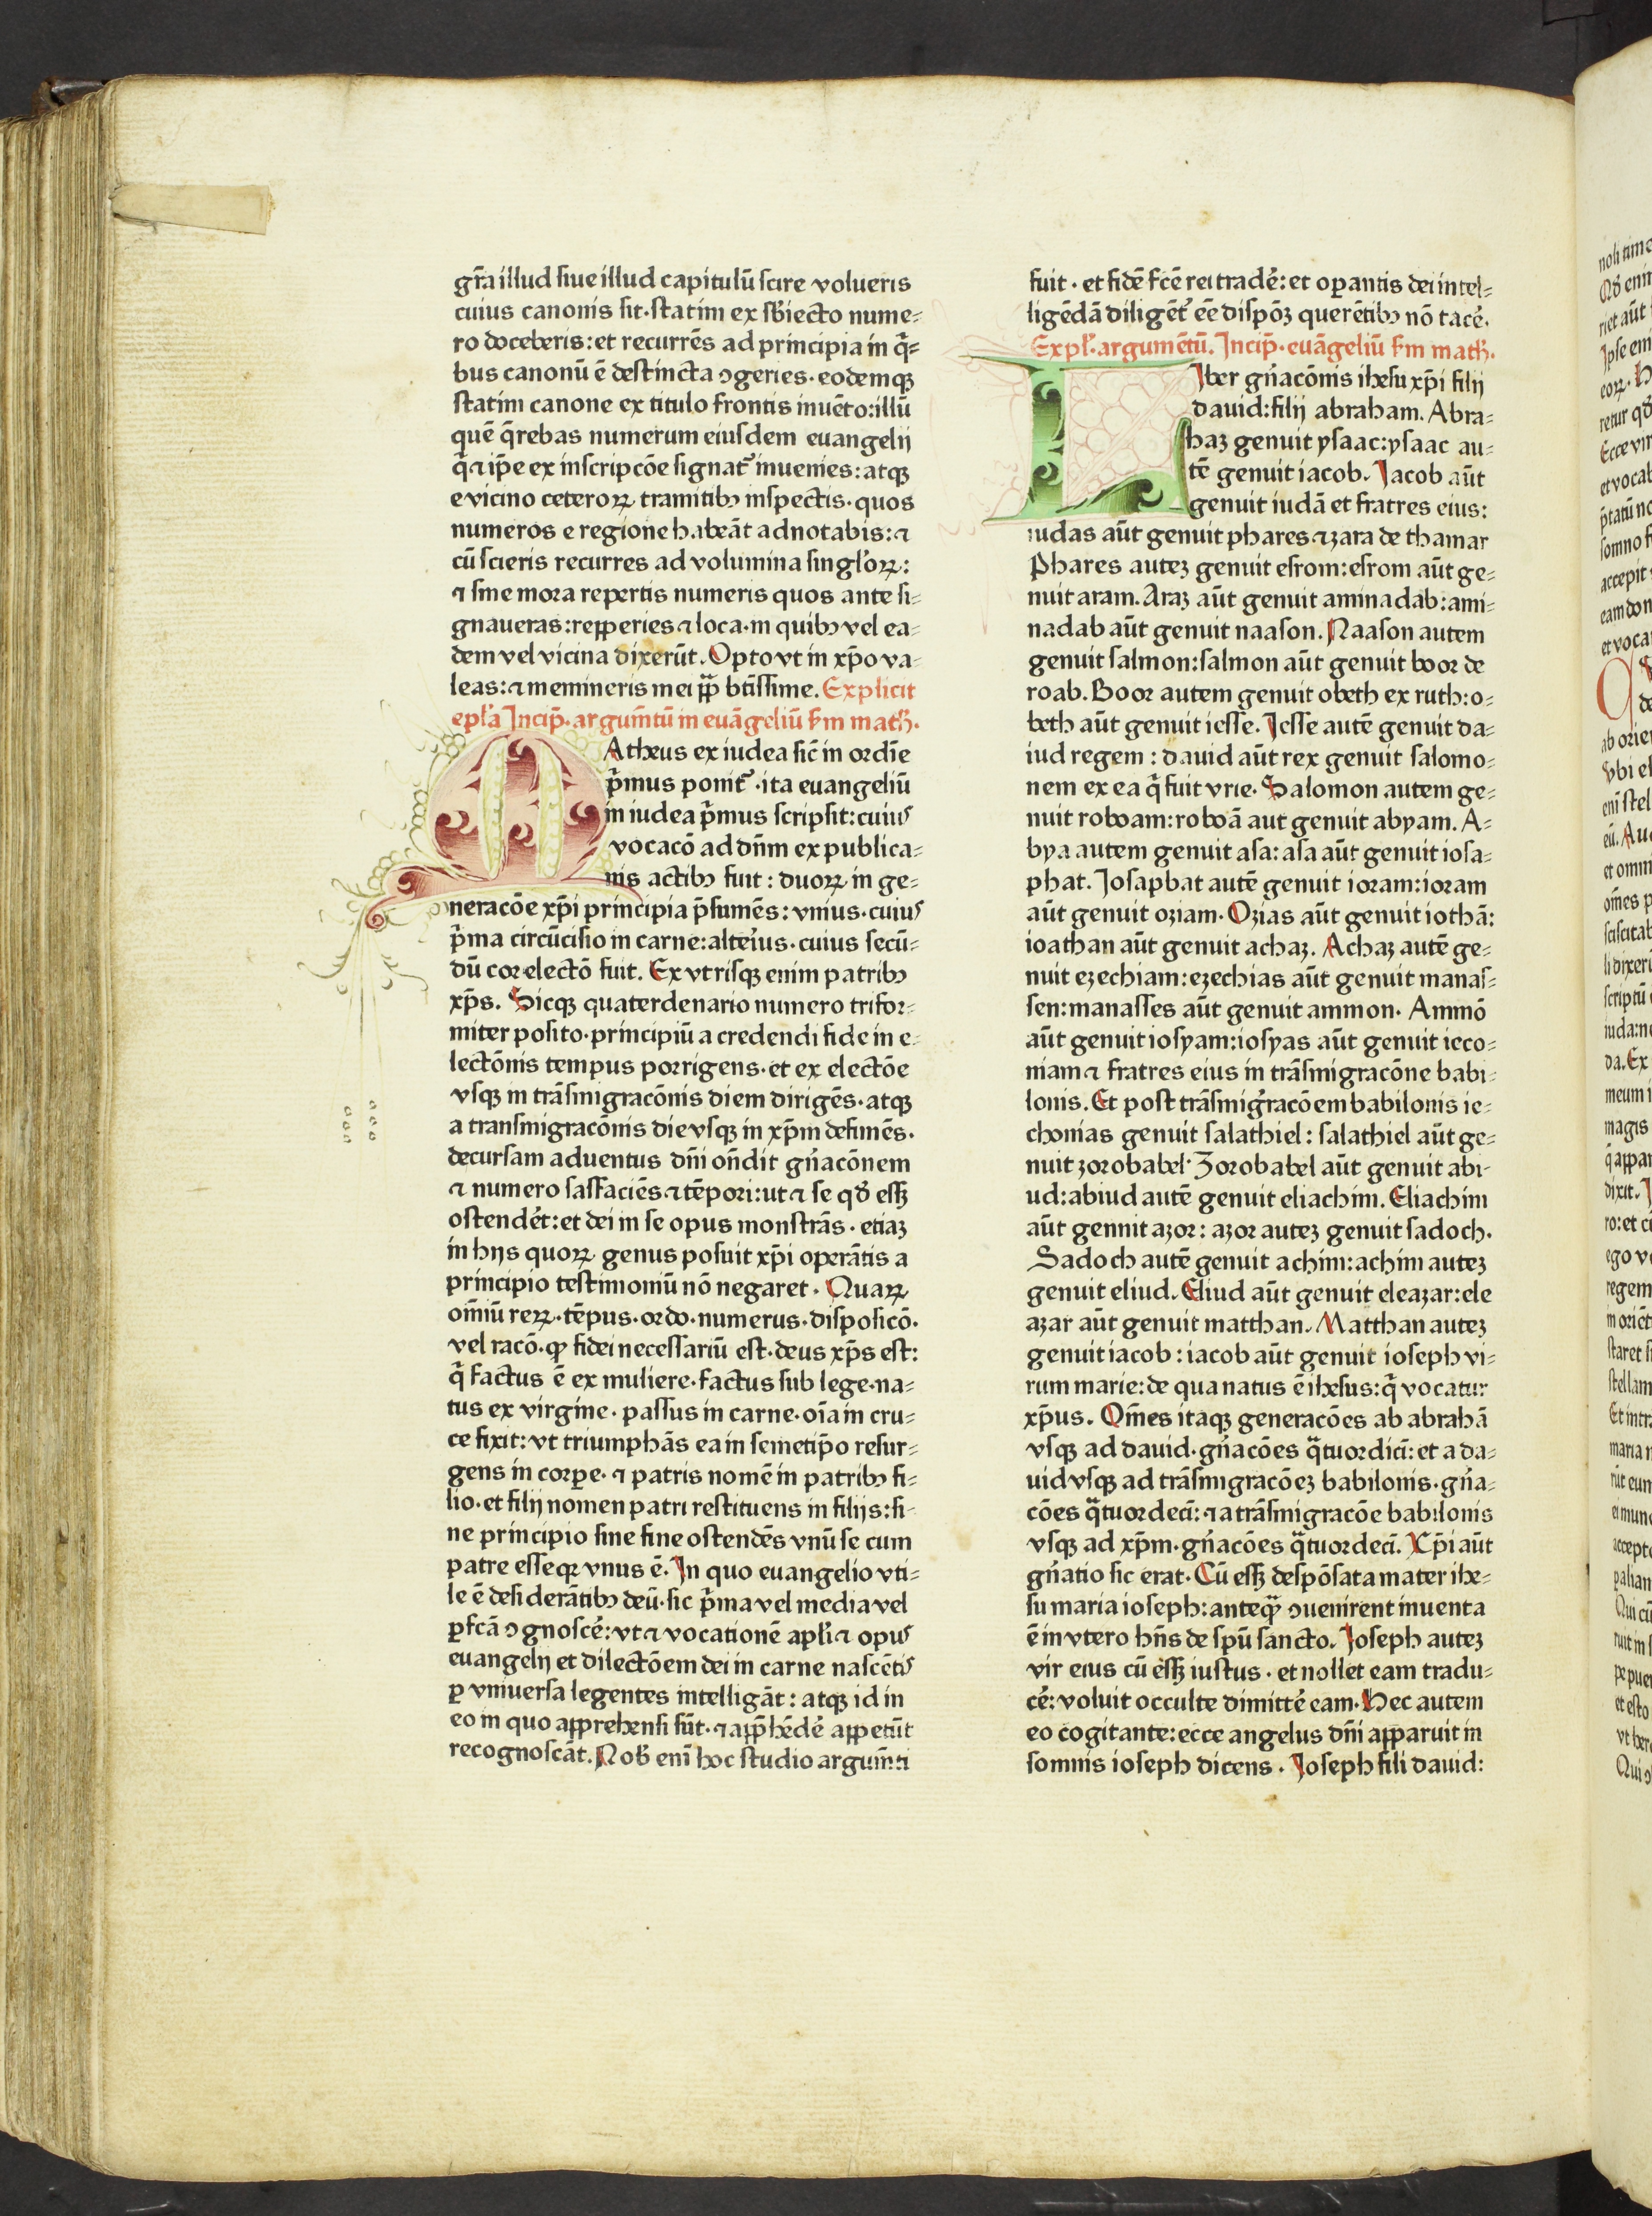 gr̃a illud siue illud capitulū scire volueris
cuius canonis sit·statim ex sƀiecto nume⸗
ro doceberis:et recurrēs ad principia in q̄⸗
bus canonū ē destincta ꝯgeries·eodemqꝫ
statim canone ex titulo frontis inuēto:illū
quē q̄rebas numerum eiusdem euangelij
q̇ ⁊ ip̄e ex inscripcōe signat᷑ inuenies:atqꝫ
e vicino ceteroꝝ tramitibꝰ inspectis·quos
numeros e regione habeāt adnotabis:⁊
cū scieris recurres ad volumina singl'oꝝ:
⁊ sine mora repertis numeris quos ante si⸗
gnaueras:repperies ⁊ loca·in quibꝰ vel ea⸗
dem vel vicina dixerūt. Opto vt in xp̄o va⸗
leas:⁊ memineris mei pp̄ btīssime. Explicit
epl'a Incip̄·argum̄tū in euāgeliū ẜm math̄·
Atheus ex iudea sic̄ in ordīe
p̄mus ponit᷑·ita euangeliū
in iudea p̄mus scripsit:cuiuˢ
vocacō ad dn̄m ex publica⸗
nis actibꝰ fuit : duoꝝ in ge⸗
neracōe xp̄i principia p̄sumēs: vnius·cuiuˢ
p̄ma circūcisio in carne:alteīus·cuius secū⸗
dū cor electō fuit. Ex vtrisqꝫ enim patribꝰ
xp̄s. Sicqꝫ quaterdenario numero trifor⸗
miter posito·principiū a credendi fide in e⸗
lectōnis tempus porrigens·et ex electōe
vsqꝫ in trāsmigracōnis diem dirigēs·atqꝫ
a transmigracōnis die vsqꝫ in xp̄m definēs·
decursam aduentus dn̄i on̄dit gn̄acōnem
⁊ numero sasfaciēs ⁊ tēpori:ut ⁊ se qđ essꝫ
ostendēt:et dei in se opus monstrās · etiaꝫ
in hijs quoꝝ genus posuit xp̄i operātis a
principio testimoniū nō negaret · Quaꝝ
om̄iū reꝝ·tēpus·ordo·numerus·disposicō·
vel racō·ꝙ fidei necessariū est·deus xp̄s est:
q̇ factus ē ex muliere·factus sub lege·na⸗
tus ex virgine·passus in carne·oīa in cru⸗
ce fixit:vt triumphās ea in semetip̄o resur⸗
gens in corꝑe·⁊ patris nomē in patribꝰ fi⸗
lio·et filij nomen patri restituens in filijs:si⸗
ne principio sine fine ostendēs vnū se cum
patre esse qꝛ vnus ē. In quo euangelio vti⸗
le ē desiderātibꝰ deū·sic p̄ma vel media vel
ꝑfcā ꝯgnoscē:vt ⁊ vocationē apl'i ⁊ opuˢ
euangelij et dilectōem dei in carne nascētiˢ
ꝑ vniuersa legentes intelligāt : atqꝫ id in
eo in quo apprehensi sūt·⁊ app̄hēdē appetūt
recognoscāt. Nob̄ enī hoc studio argum̄ti
fuit · et fidē fcē rei tradē:et oꝑantis dei intel⸗
ligēdā diligēt᷑ eē dispōꝫ querētibꝰ nō tacē·
Expl'·argumētū. Incip̄·euāgeliū ẜm math̄.
Iber gn̄acōnis ihesu xp̄i filij
dauid:filij abraham. Abra⸗
haꝫ genuit ysaac:ysaac au⸗
tē genuit iacob. Iacob aūt
genuit iudā et fratres eius:
iudas aūt genuit phares ⁊ zara de thamar
Phares auteꝫ genuit esrom:esrom aūt ge⸗
nuit aram. Araꝫ aūt genuit aminadab:ami⸗
nadab aūt genuit naason. Naason autem
genuit salmon:salmon aūt genuit booz de
roab. Booz autem genuit obeth ex ruth:o⸗
beth aūt genuit iesse. Iesse autē genuit da⸗
iud regem : dauid aūt rex genuit salomo⸗
nem ex ea q̄ fuit vrie. Salomon autem ge⸗
nuit roboam:roboā aut genuit abyam. A⸗
bya autem genuit asa: asa aūt genuit iosa⸗
phat. Iosaphat autē genuit ioram:ioram
aūt genuit oziam. Ozias aūt genuit iothā:
ioathan aūt genuit achaz. Achaz autē ge⸗
nuit ezechiam:ezechias aūt genuit manas⸗
sen:manasses aūt genuit ammon. Ammō
aūt genuit iosyam:iosyas aūt genuit ieco⸗
niam ⁊ fratres eius in trāsmigracōne babi⸗
lonis. Et post trāsmigracōem babilonis ie⸗
chonias genuit salathiel : salathiel aūt ge⸗
nuit zorobabel· Zorobabel aūt genuit abi⸗
ud:abiud autē genuit eliachim. Eliachim
aūt gennit azor: azor auteꝫ genuit sadoch.
Sadoch autē genuit achim:achim auteꝫ
genuit eliud. Eliud aūt genuit eleazar:ele
azar aūt genuit matthan. Matthan auteꝫ
genuit iacob : iacob aūt genuit ioseph vi⸗
rum marie:de qua natus ē ihesus:q̇ vocatur
xp̄us. Om̄es itaqꝫ generacōes ab abrahā
vsqꝫ ad dauid·gn̄acōes q̈tuordici:et a da⸗
uid vsqꝫ ad trāsmigracōeꝫ babilonis·gn̄a⸗
cōes q̈tuordecī:⁊ a trāsmigracōe babilonis
vsqꝫ ad xp̄m·gn̄acōes q̈tuordecī. Xp̄i aūt
gn̄atio sic erat. Cū essꝫ despōsata mater ihe⸗
su maria ioseph:anteq̄ꝫ ꝯuenirent inuenta
ē in vtero hn̄s de spū sancto. Ioseph auteꝫ
vir eius cū essꝫ iustus · et nollet eam tradu⸗
cē:voluit occulte dimittē eam. Hec autem
eo cogitante:ecce angelus dn̄i apparuit in
somnis ioseph dicens · Ioseph fili dauid: